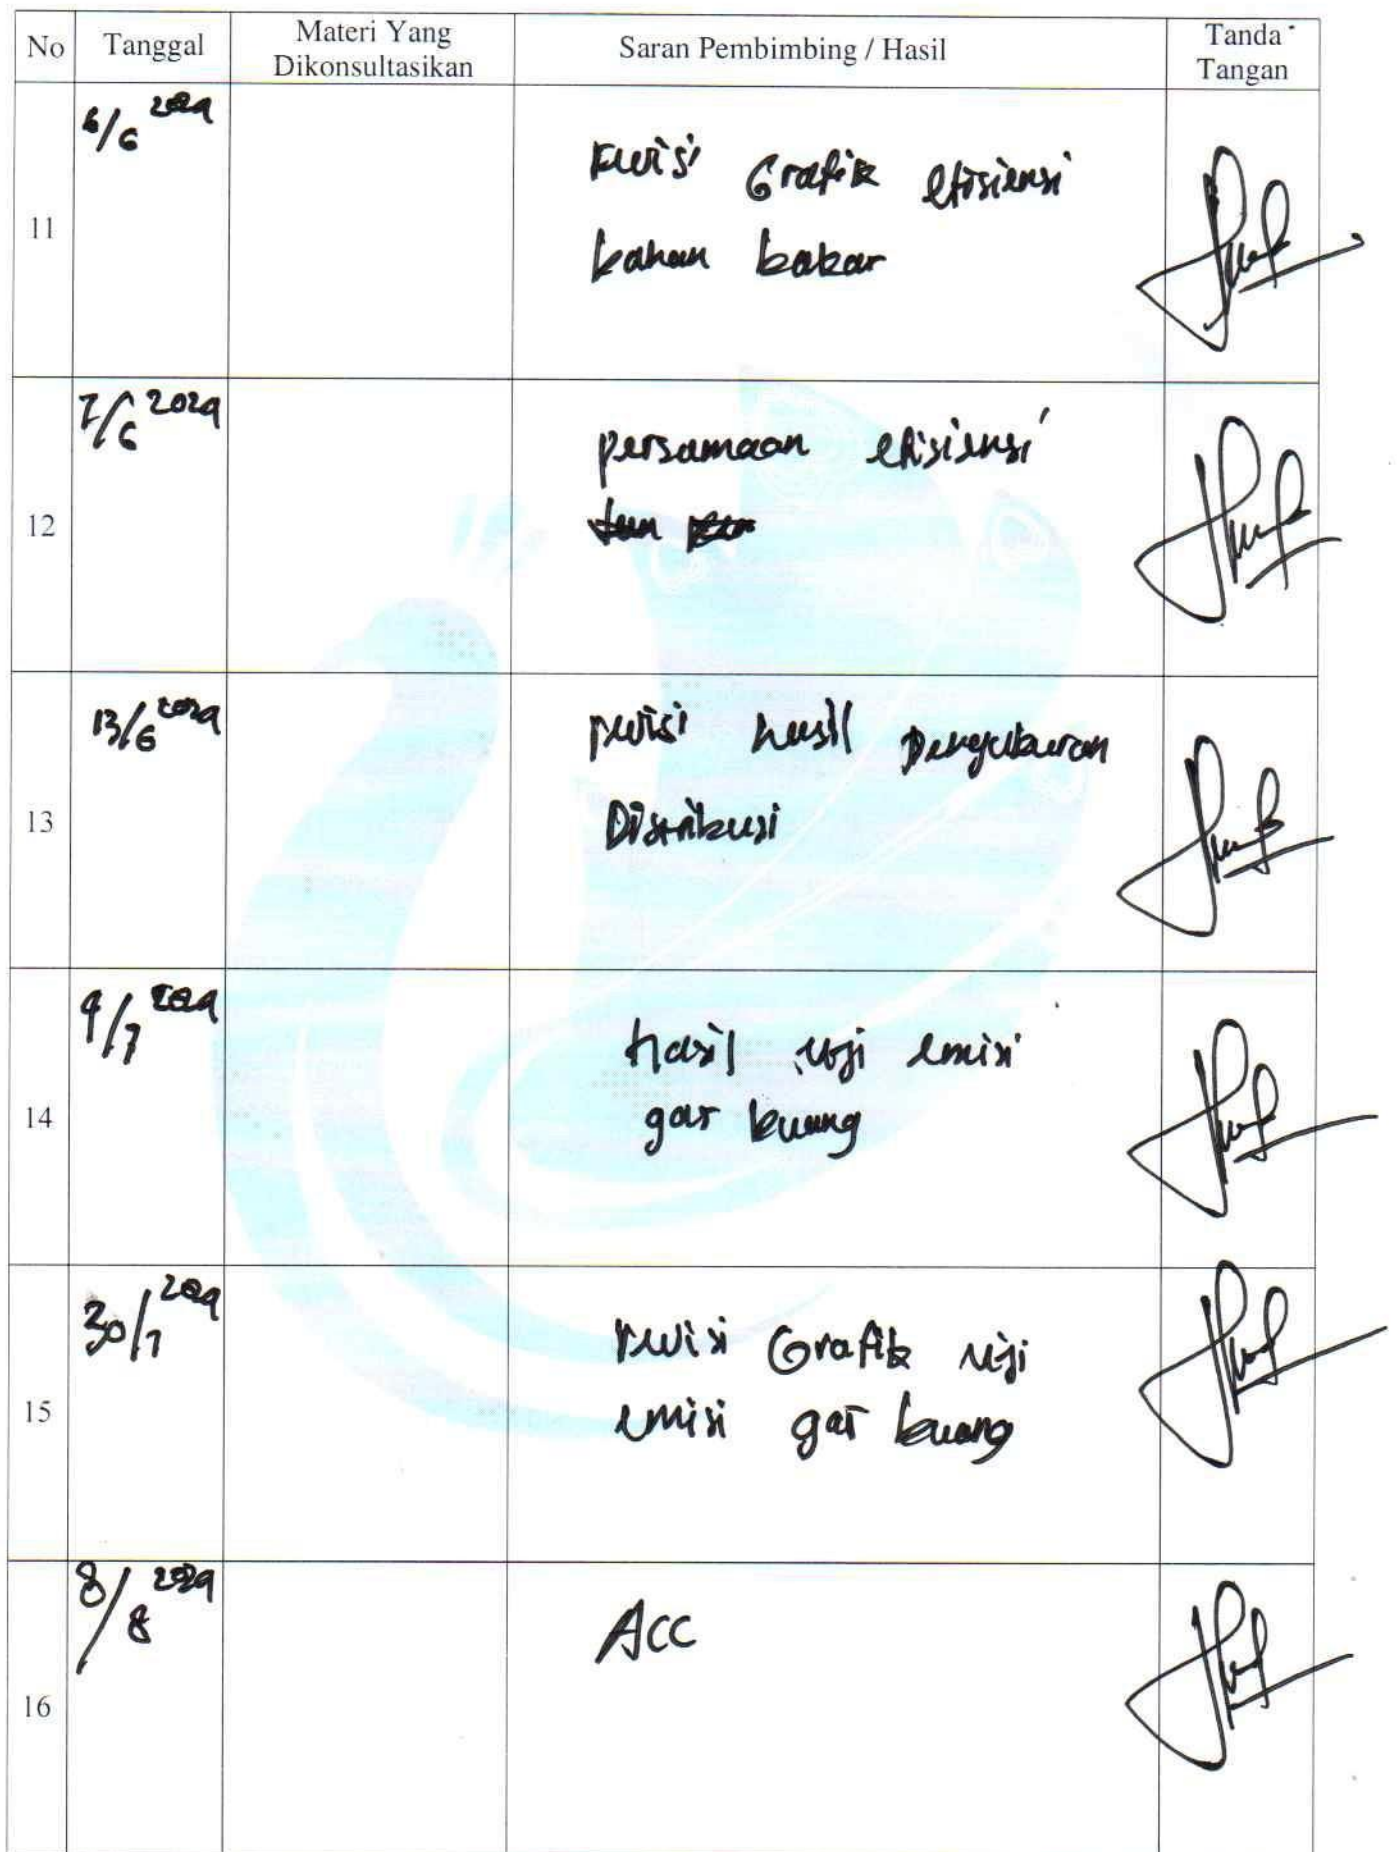 No Tanggal Materi Yang Dikonsultasikan Saran Pembimbing / Hasil Tanda Tangan
11 6/6 2024
Revisi Grafik efisiensi
bahan bakar
12 7/6 2024
persamaan efisiensi
13 13/6 2024
revisi hasil pengukuran
Distribusi
14 9/7 2024
Hasil uji emisi
gas buang
15 30/7 2024
revisi Grafik uji
emisi gas buang
16 8/8 2024
ACC